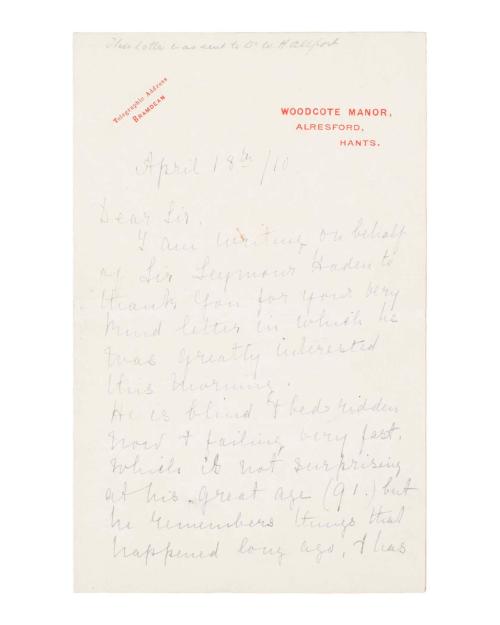 This letter was sent to Dr W. H. Allport
Telegraphic Address
BRAMDEAN
WOODCOTE MANOR,
ALRESFORD,
HANTS.
April 18th /10
Dear Sir.
I am writing on behalf
of Sir Seymour Haden to
thank you for your very
kind letter in which he
was greatly interested
this morning.
He is blind & bed ridden
now & failing very fast,
which is not surprising
at his great age (91.) but
he remembers things that
happened long ago, & has